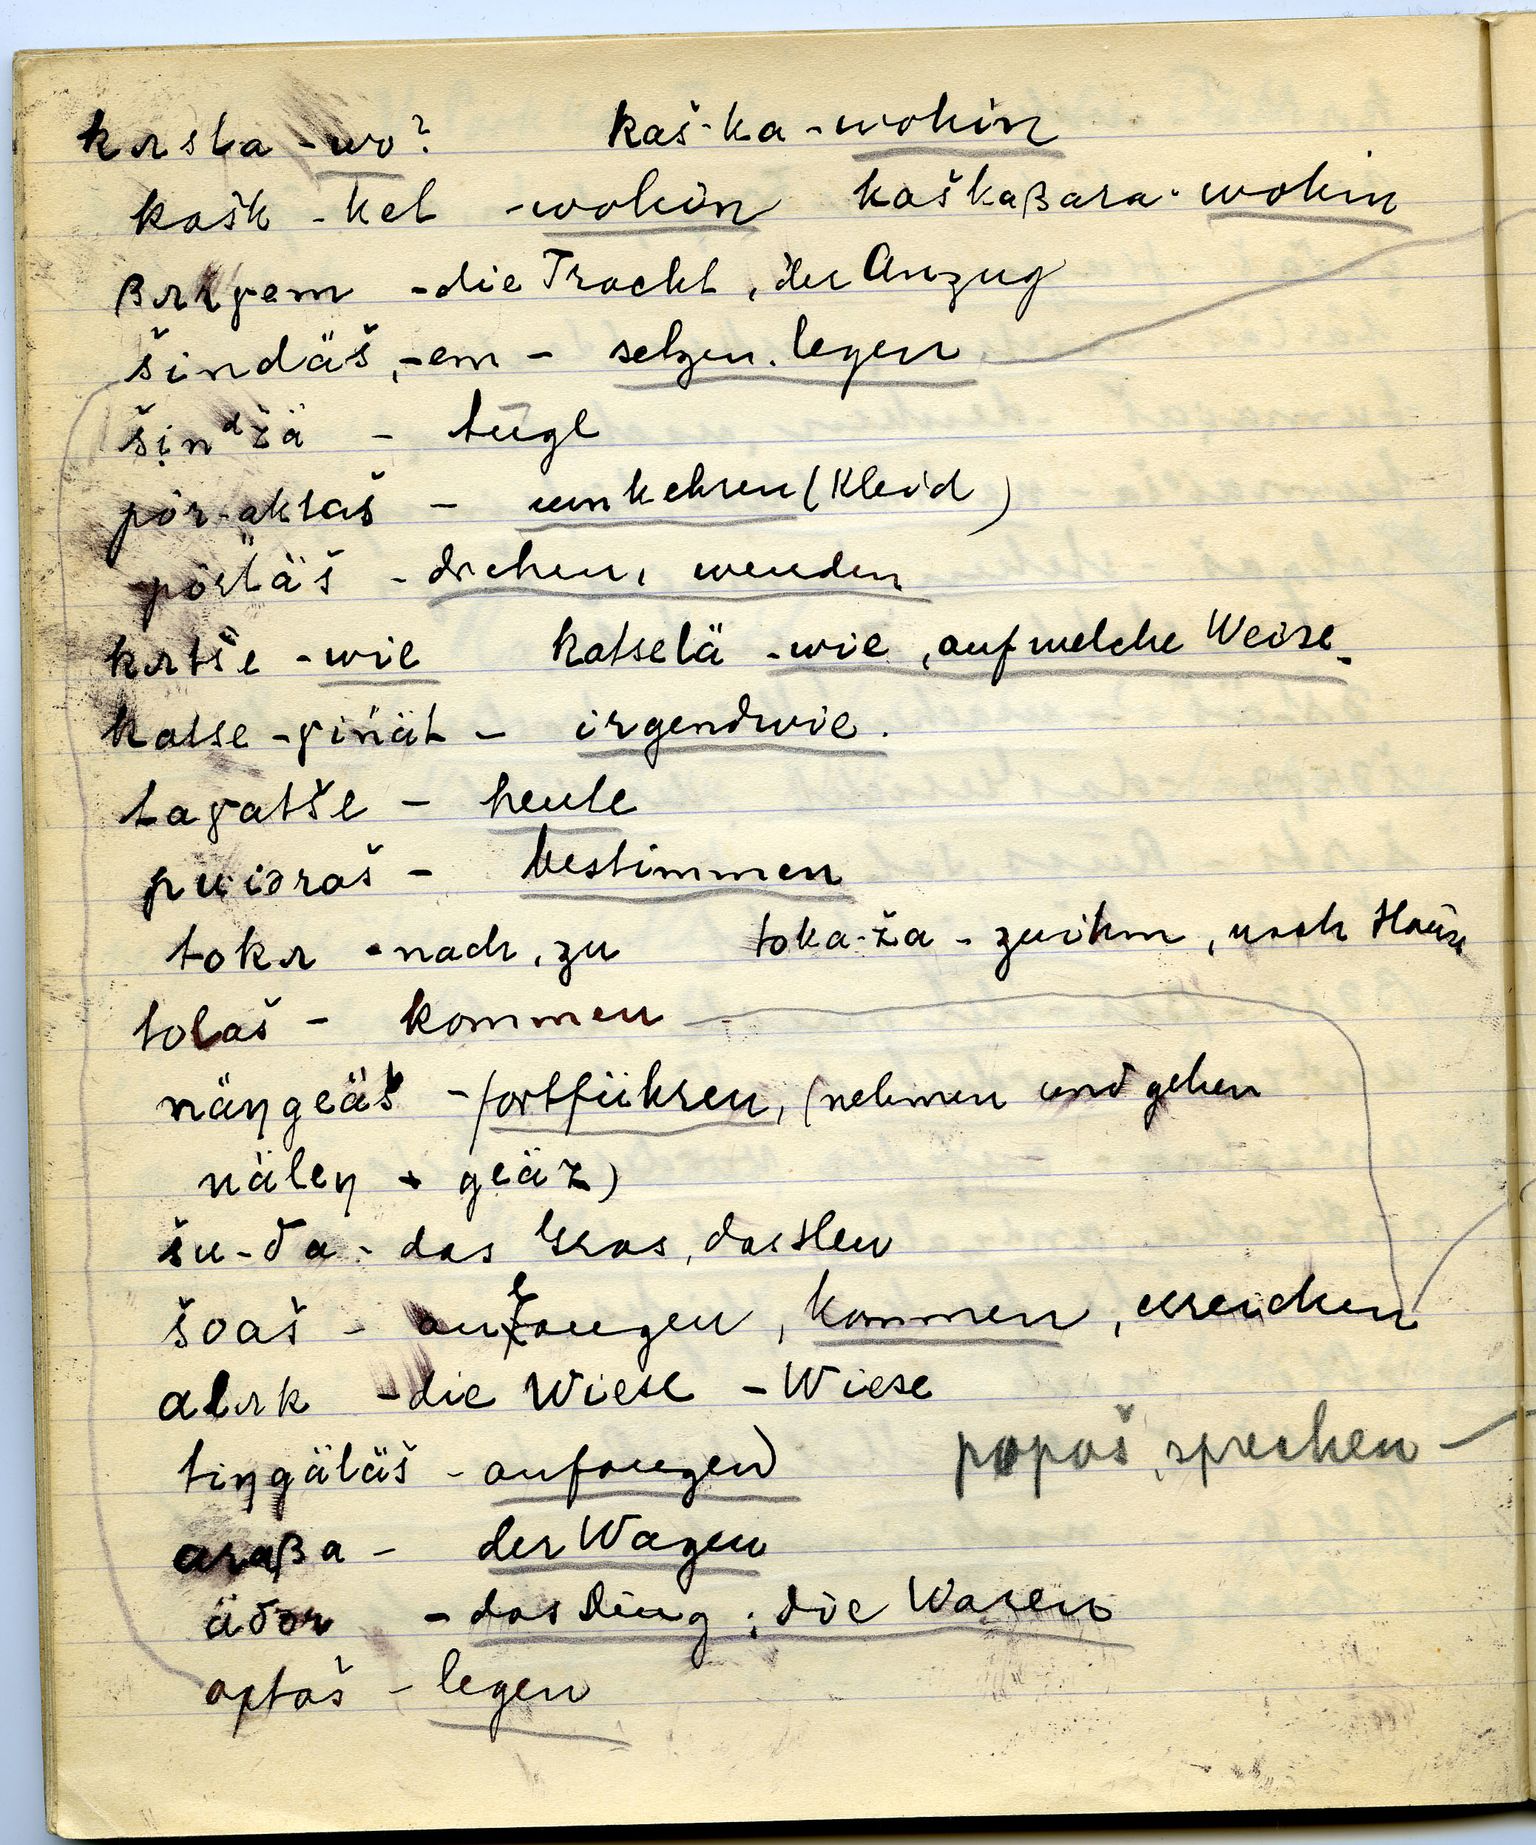 kʌsta - wo? kaš-ka - wohin
kašk - ket - wohin kaškaβara - wohin
βʌrγem - die Tracht, der Anzug
šindäš, -em - setzen, legen
šinᵈžä -
pör-aktaš - umkehren (Kleid)
pörtäš - drehen, wenden
kʌtše - wie katselä - wie, auf welche Weise
katse - γińät - irgendwie.
taγatše - heute
puiəraš - bestimmen
tokʌ - nach, zu toka-ža - zu ihm, nach Hause
tolaš - kommen
näŋgeäš - fortführen, (nehmen und gehen
näleŋ + geäz)
šu-δa - das Gras, das Heu
šoaš - anlangen, kommen, erreichen
alʌk - die Wiese - Wiese
tiŋgäläš - anfangen) popaš, sprechen
araβa - der Wagen
äδər - das Ding, die Waren
optaš - legen